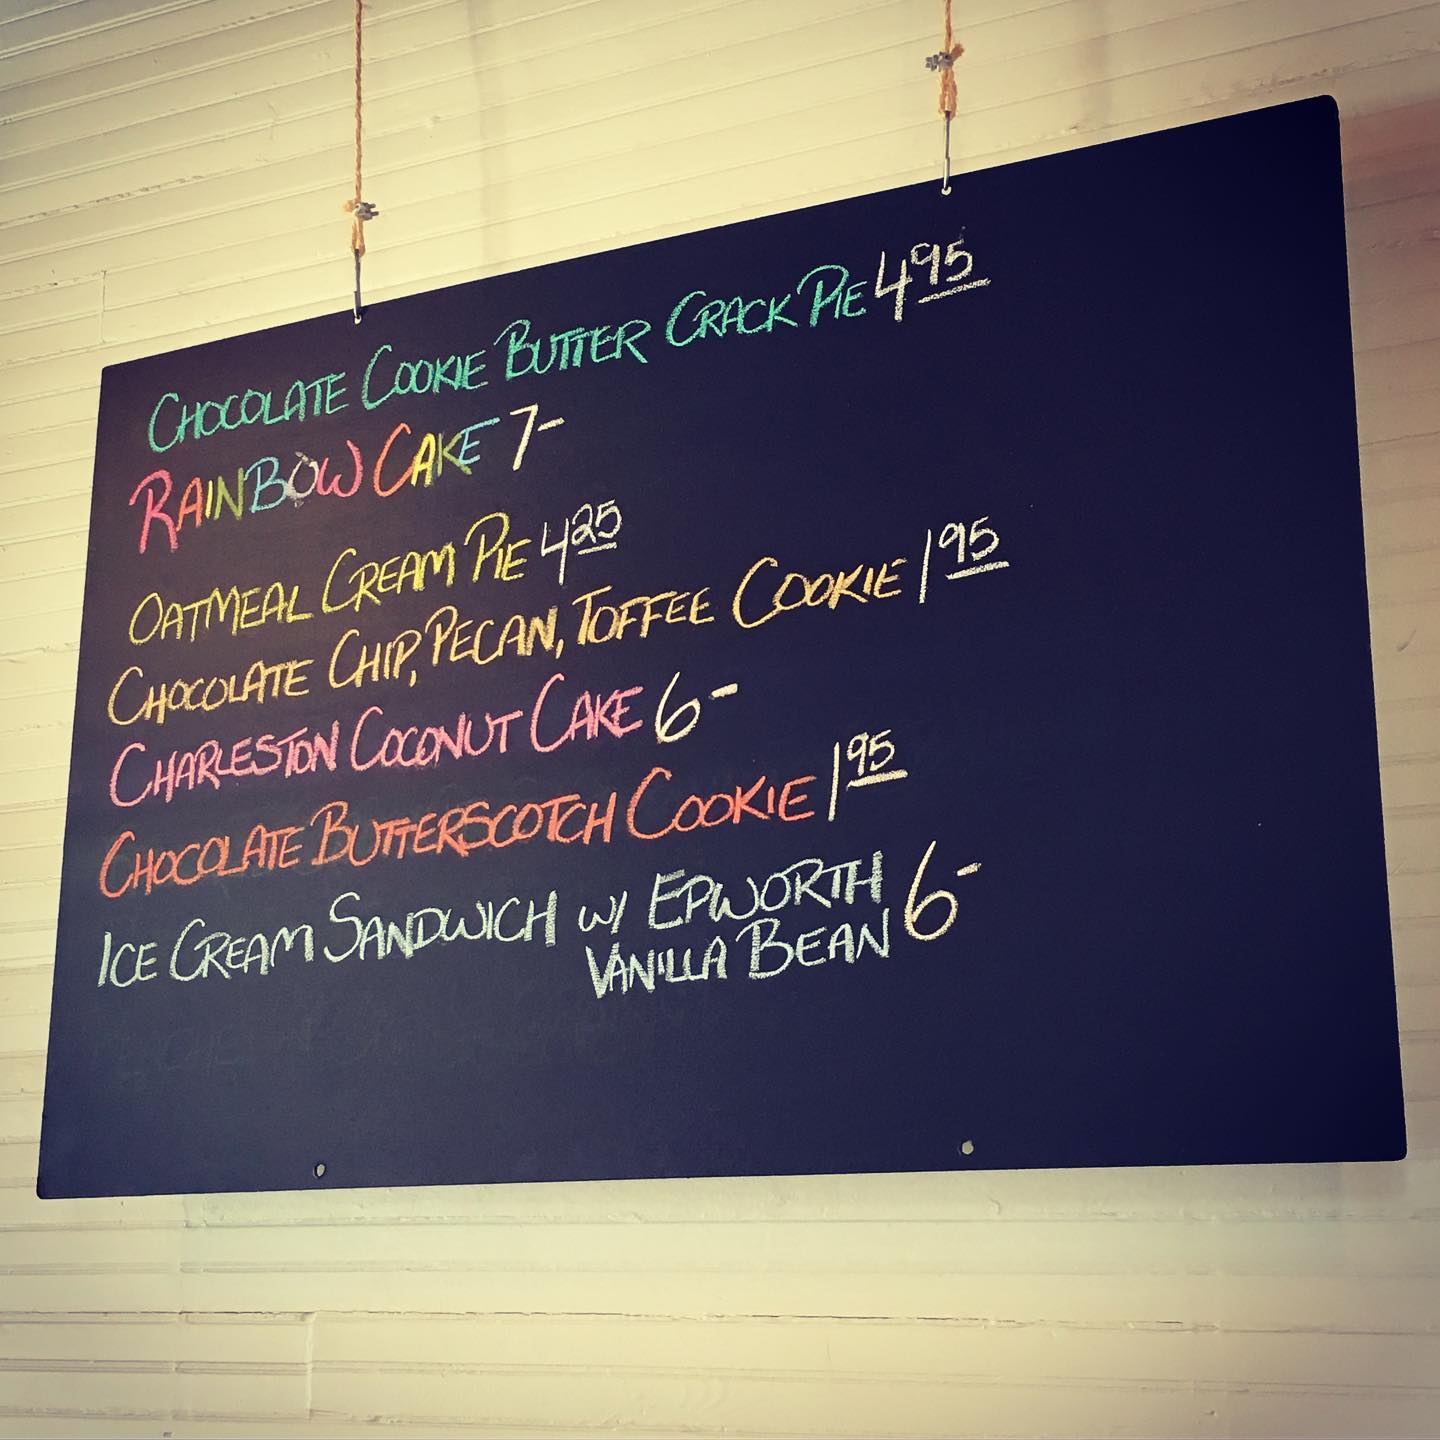 CHOCOLATE COOKIE BUTTER CRACK PIE 4 95
RAINBOW CAKE 7-
OATMEAL CREAM PIE 4 25
CHOCOLATE CHIP, PECAN, TOFFEE COOKIE 1 95
CHARLESTON COCONUT CAKE 6-
CHOCOLATE BUTTERSCOTCH COOKIE 1 95
ICE CREAM SANDWICH W/ EPWORTH
VANILLA BEAN 6-